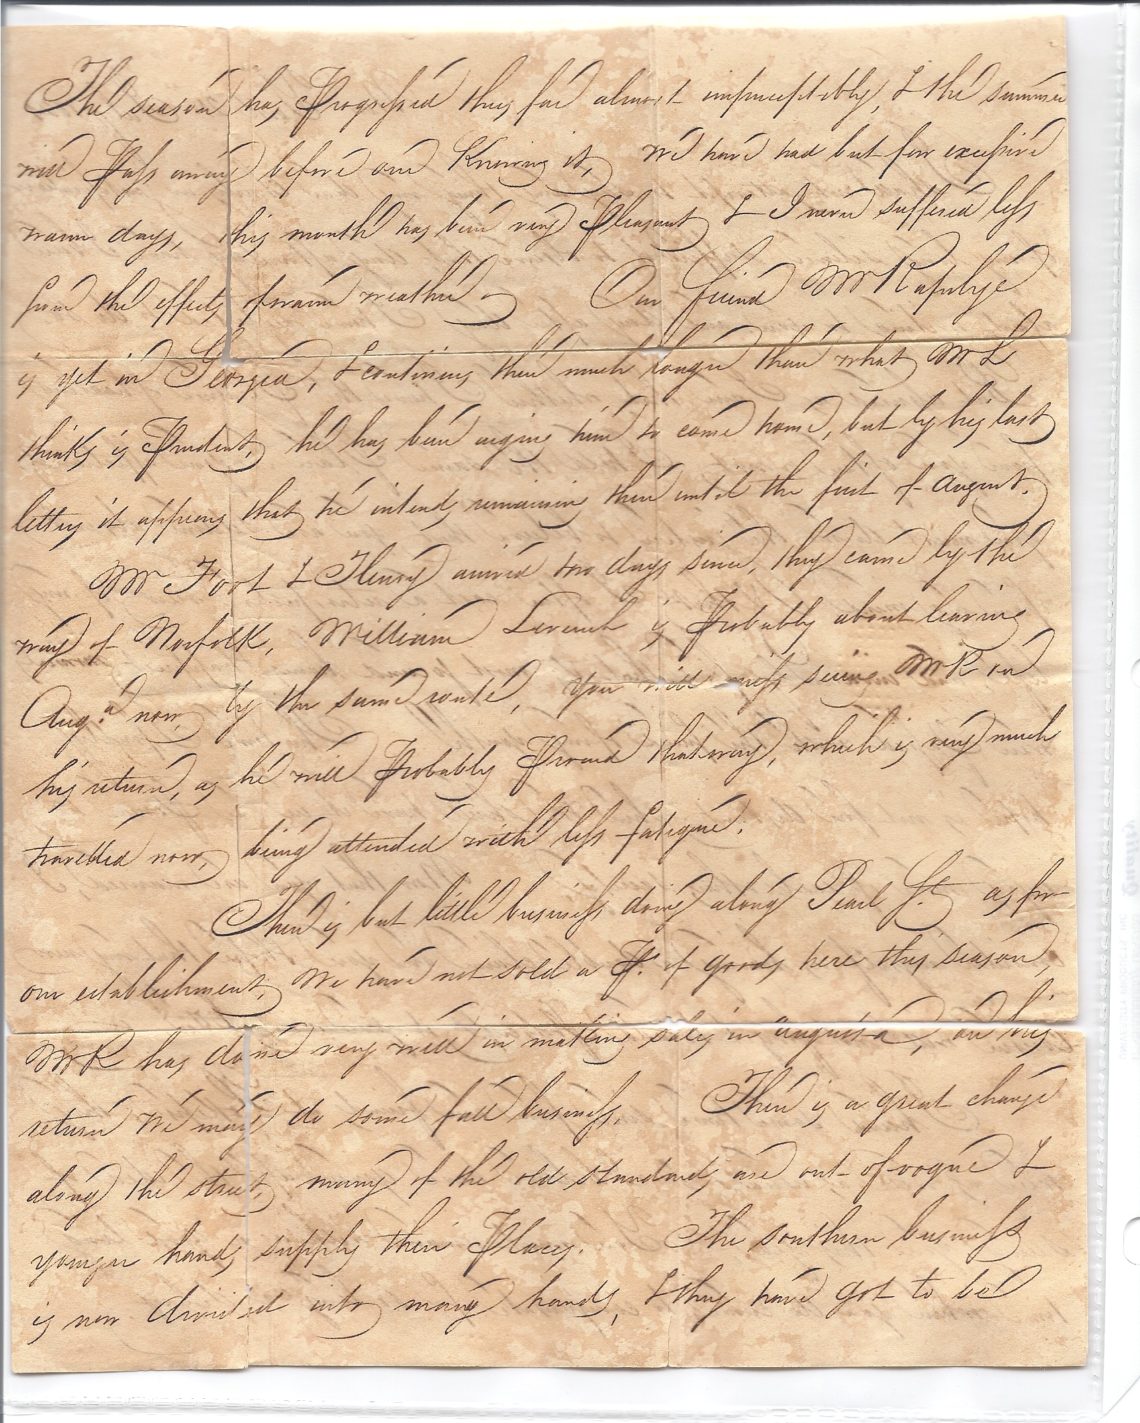 The season has Progressed thus far almost imperceptibly, & the summer
will Pass away before our Knowing it, we have had but few excessive
warm days, this month has been very Pleasant & I never suffered less
from the effects of warm weather — Our friend Mr Rapelye
is yet in Georgia, & continues there much longer than what Mr L
thinks is Prudent, he has been urging him to come home, but by his last
letters it appears that he intends remaining there until the first of August.
Mr Foot & Henry arrived two days since, they came by the
way of Norfolk, William is Probably about leaving
Aug.a now, by the same route, you will miss seeing Mr R on
his return, as he will Probably Proceed that way, which is very much
travelled now, being attended with less fatigue.
There is but little business doing along Pearl St. as for
our establishment, We have not sold a of goods here this season,
Mr R has done very well in making sales in Augusta, on his
return we may do some fall business. There is a great change
along the street, many of the old standards are out of vogue &
younger hands supply their Places. The southern business
is now divided into many hands, & they have got to be